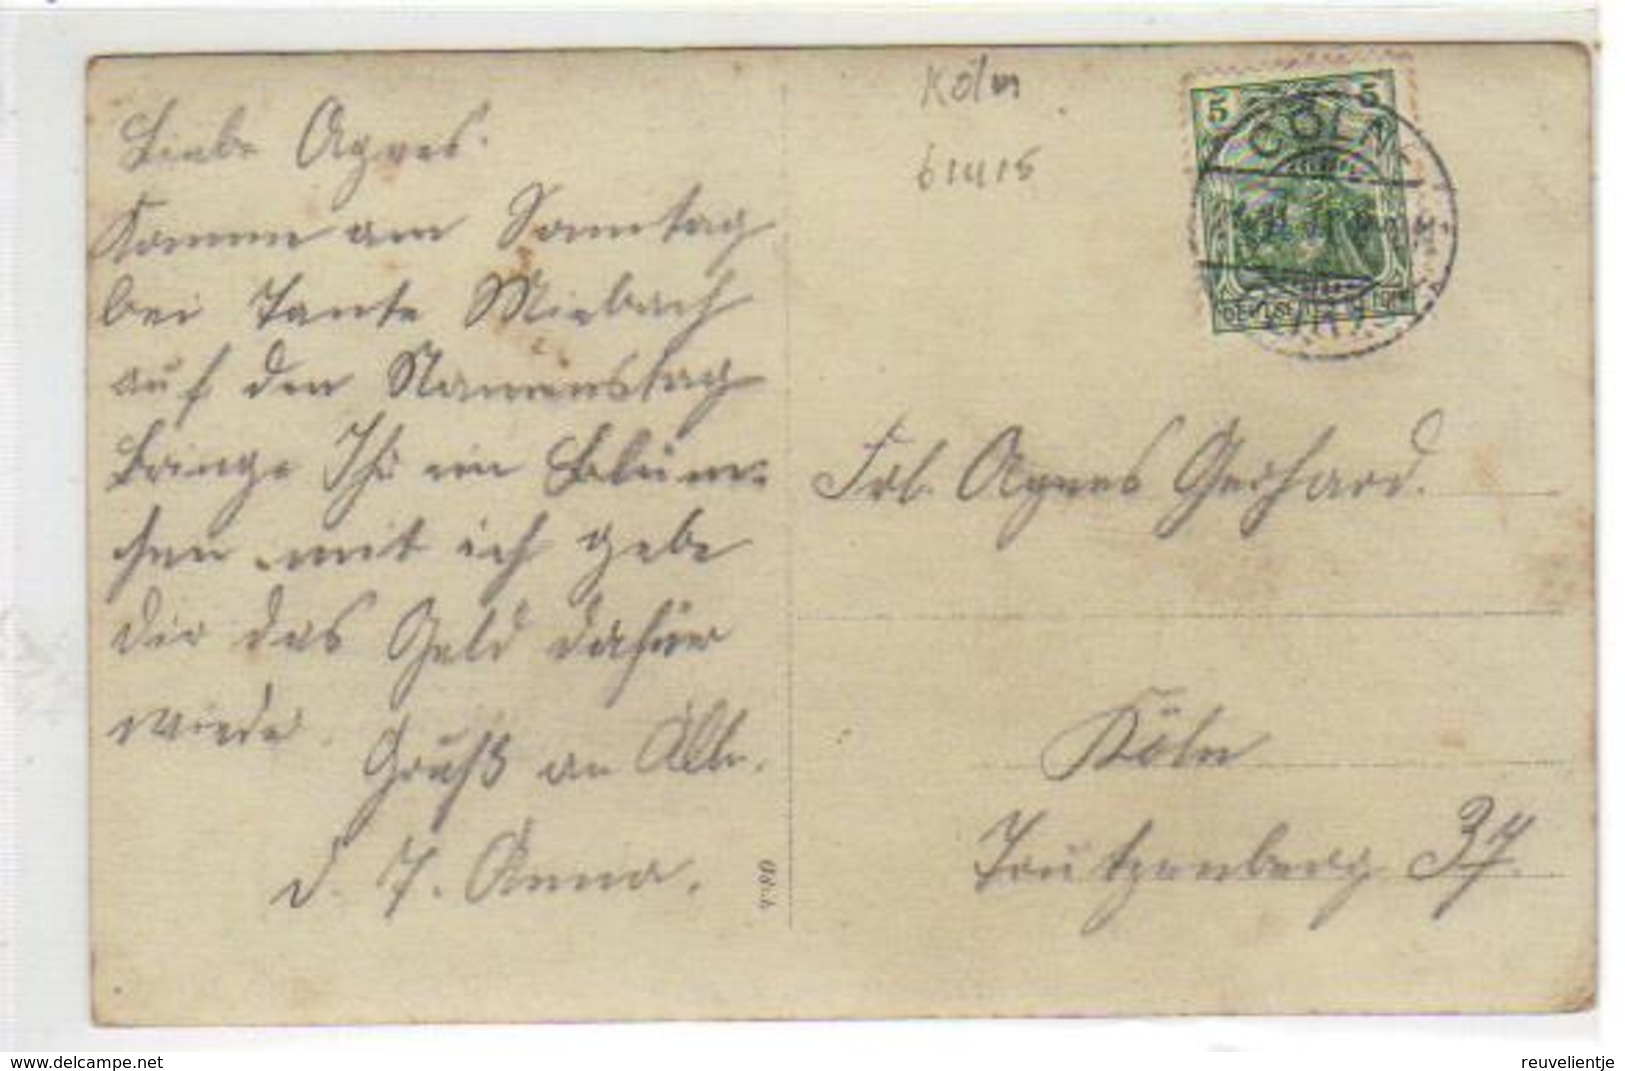 Liebe Agnes.
Komme am Sonntag
bei Tante Miebach
auf den Namenstag
bringe Ihr ein Blüm-
chen mit ich gebe
dir das Geld dafür
wieder.
Gruß an Alle.
d. T. Anna.
Köln
61415
5 5
CÖLN
DEUTSCHES REICH
Frl. Agnes Gerhard.
Köln
Trutzenberg 37.
www.delcampe.net
reuvelientje